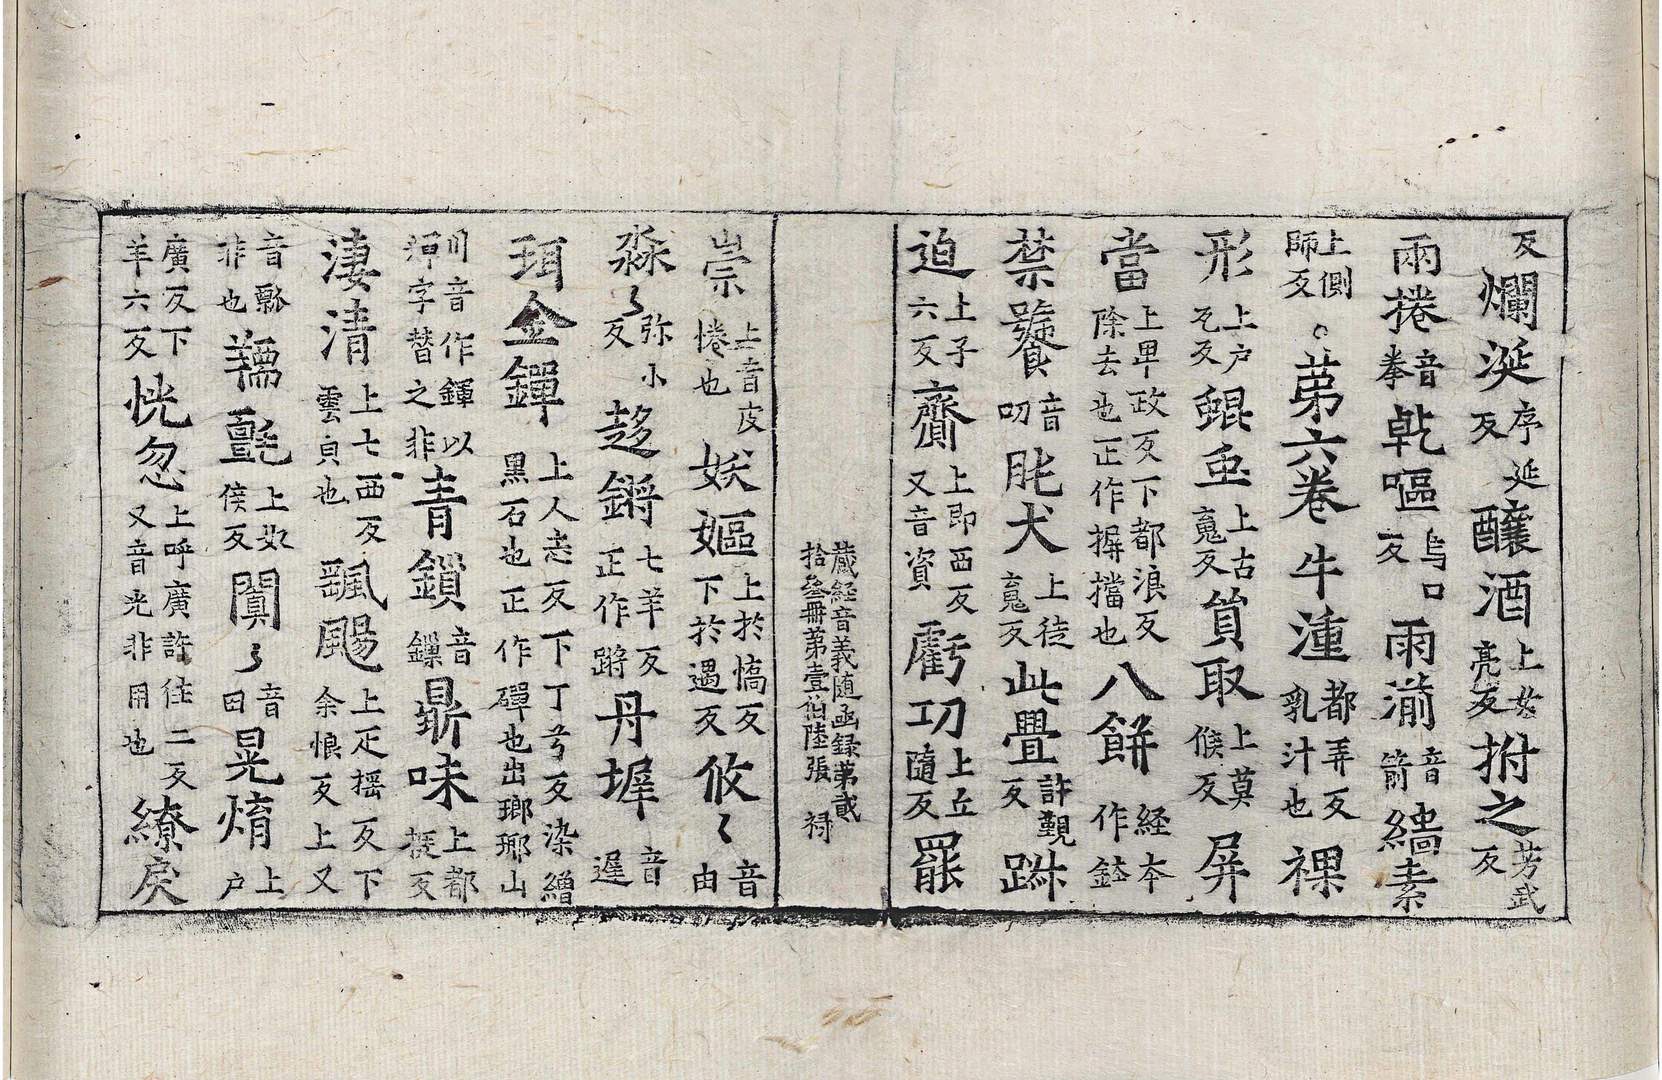 反爛涎序延反醸酒上女亮反拊之芳武反
兩捲音拳乹嘔烏口反雨湔音箭繣素
上側師反。苐六卷牛湩都弄反乳汁也裸
形上户瓦反鲲䖝上古䰟反貿取上莫候反屏
當上畀政反下都浪反除去也正作摒擋也八餅経本作鉢
禁䬴音叨肶犬上徒䰟反此舋許覲反跰
迫上子六反齎上即西反又音資虧功上丘隨反罷
藏経音義随函録苐貳拾叄冊苐壹伯陸張 禄
崇上音皮惓也妖嫗上於憍反下於遇反攸〻音由
淼〻弥小反趍鏘七羊反正作蹡丹墀音遲
珥金鎽上人志反下丁兮反染繒黑石也正作磾也出瑯瑘山
川音作鍕以渖字替之非青鎖音鏁㬎味上都挺反
淒清上七西反雲皃也颽颺上疋揺反下余悢反上又
音瓢非也䎡氎上奴侯反闐〻音田晃㷇上户
廣反下羊六反恍忽上呼廣許往二反又音光非用也繚戾